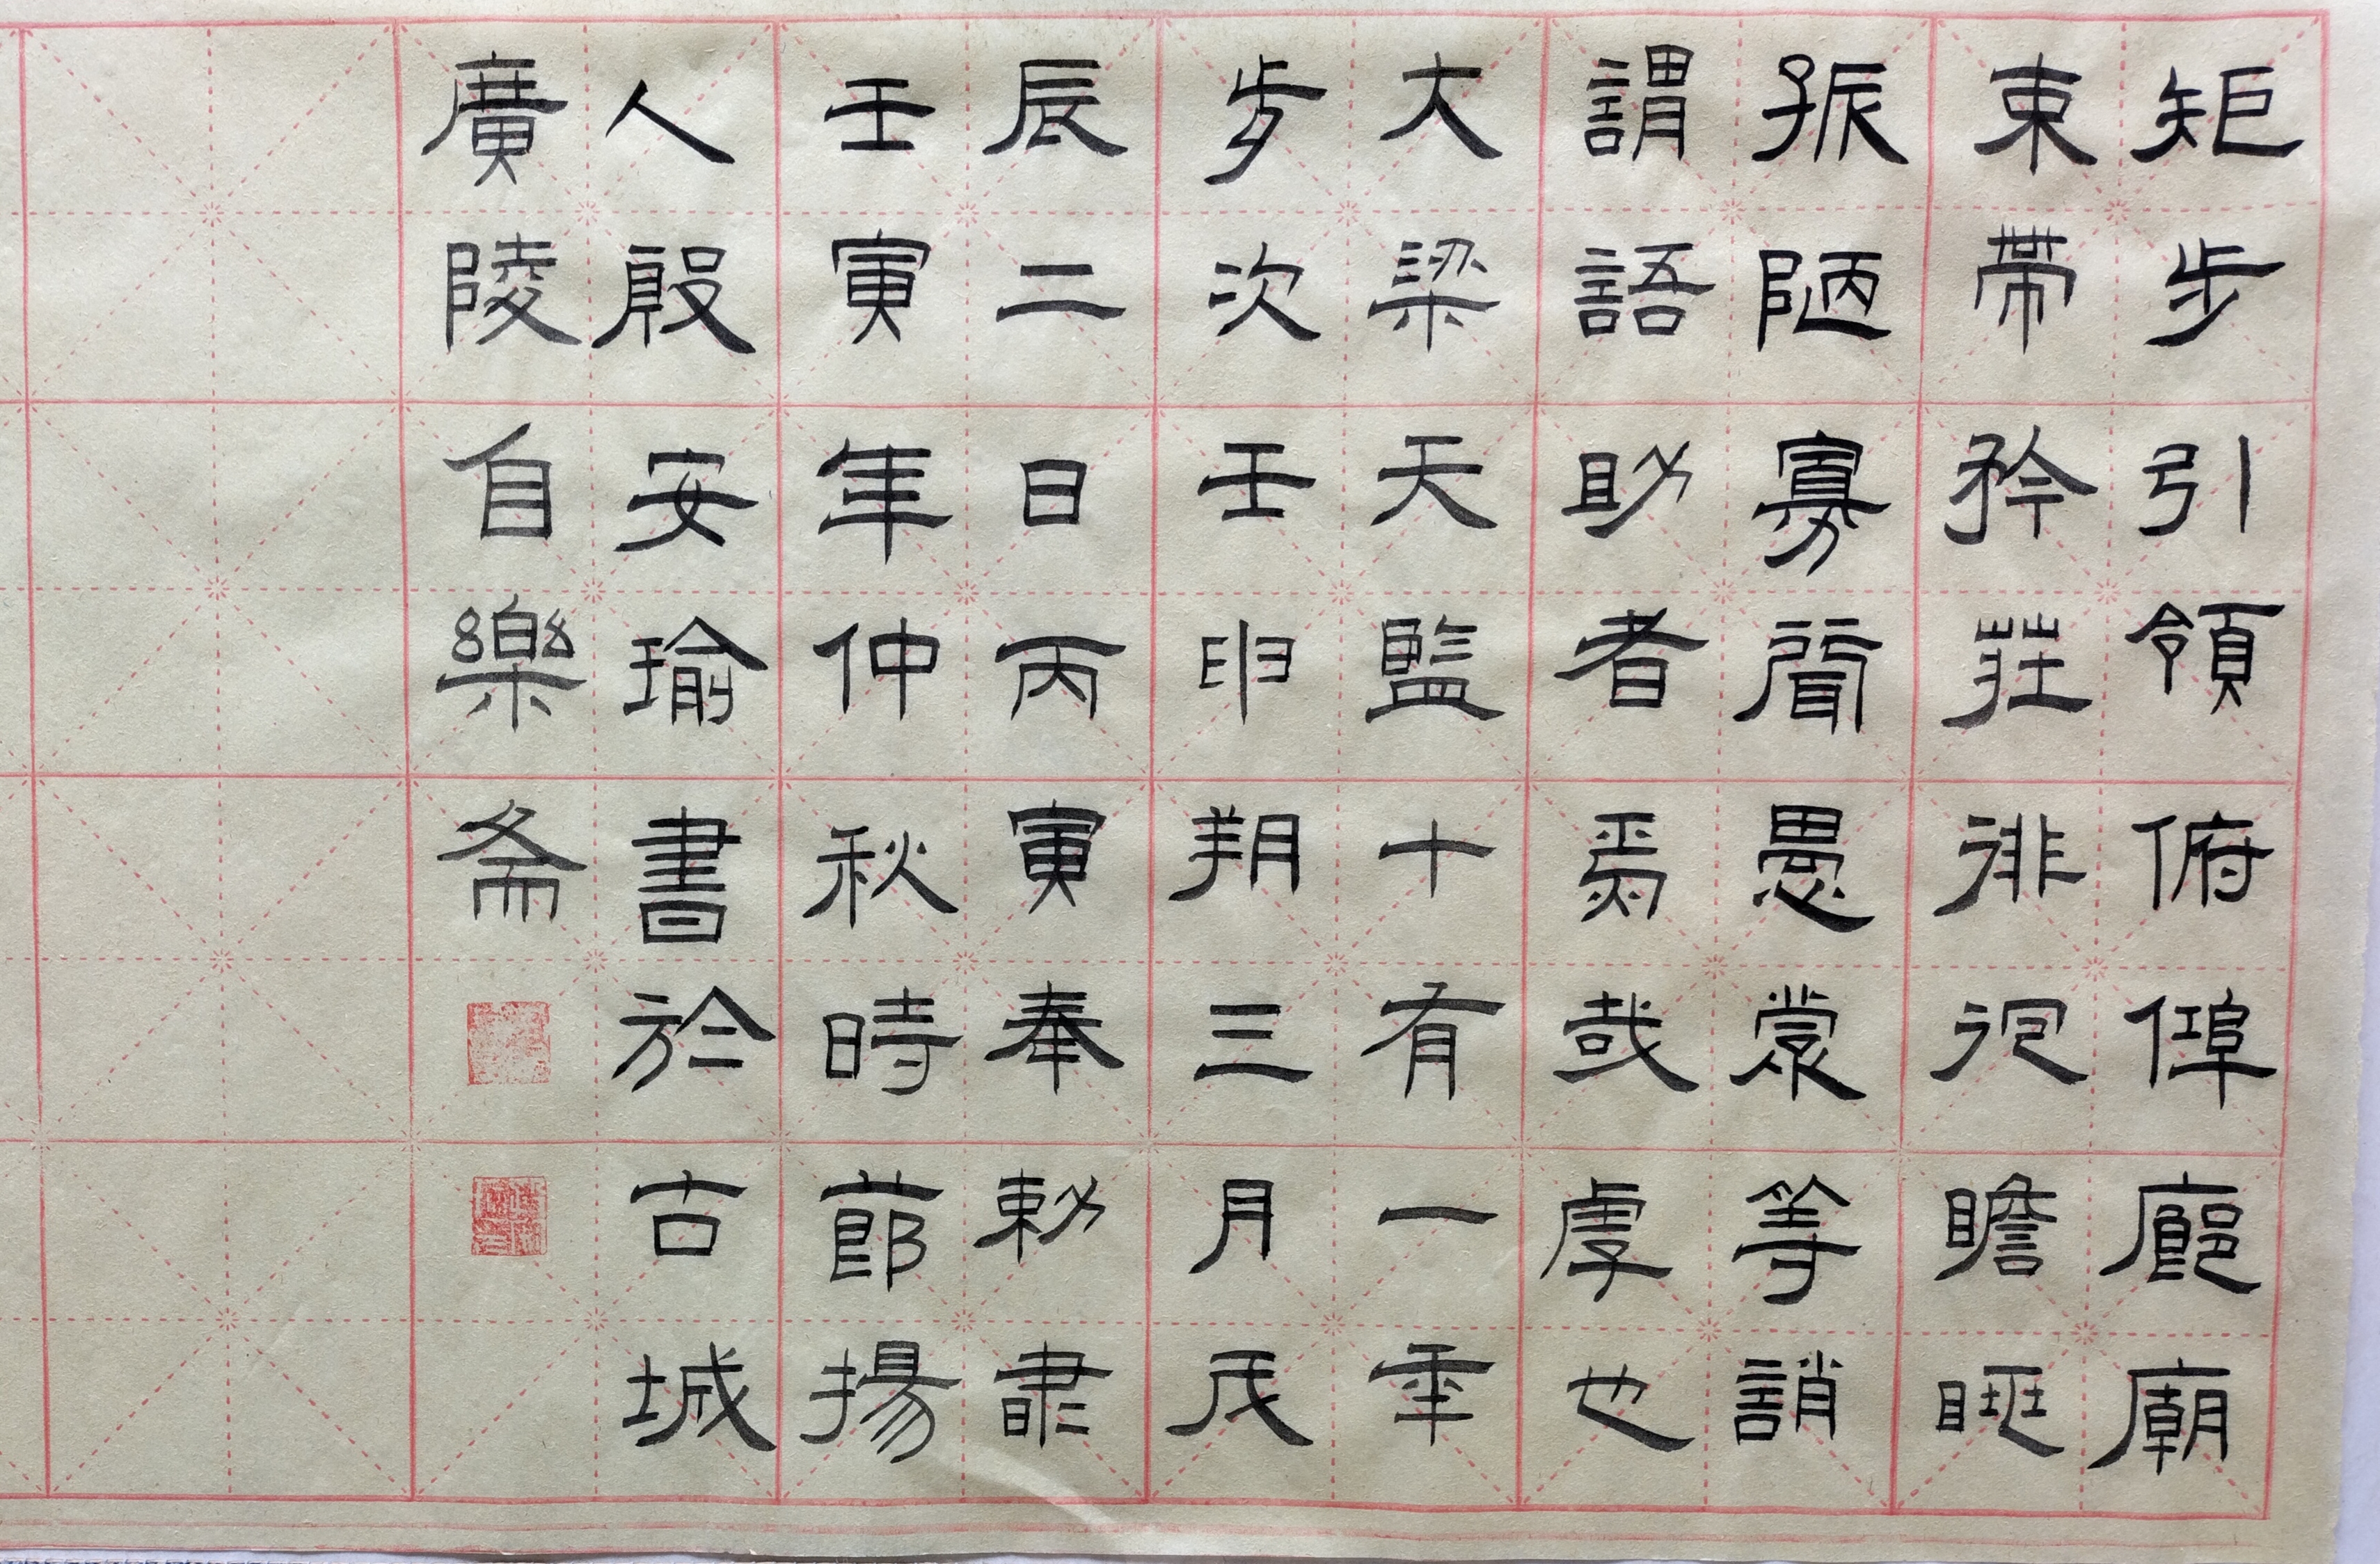 矩步引領俯仰廊廟
束帶矜莊徘徊瞻眺
孤陋寡聞愚蒙等誚
謂語助者焉哉乎也
大梁天監十有一年
歲次壬申朔三月戊
辰二日丙寅奉勅肅
壬寅年仲秋時節揚
人殷安瑜書於古城
廣陵自樂斋